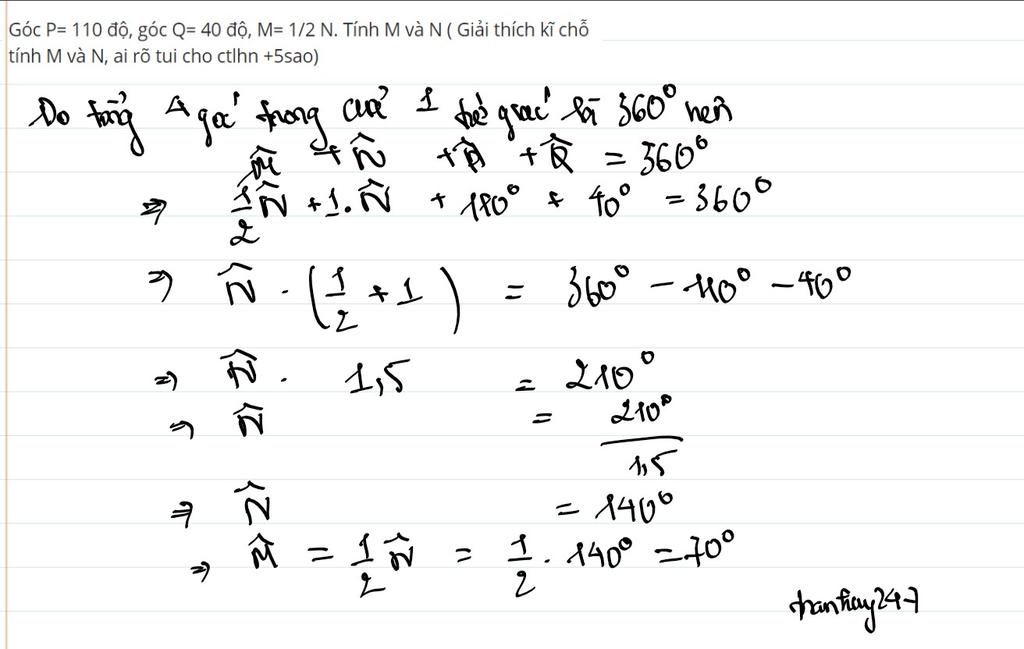 Góc P= 110 độ, góc Q= 40 độ, M= 1/2 N. Tính M và N ( Giải thích kĩ chỗ
tính M và N, ai rõ tui cho ctlhn +5sao)
Do tổng 4 góc trong của 1 tứ giác là 360° nên
M̂ + N̂ + P̂ + Q̂ = 360°
⇒ 1/2 N̂ + 1. N̂ + 110° + 40° = 360°
⇒ N̂ . (1/2 + 1) = 360° - 110° - 40°
⇒ N̂ . 1,5 = 210°
⇒ N̂ = 210°/1,5
⇒ N̂ = 140°
⇒ M̂ = 1/2 N̂ = 1/2 . 140° = 70°